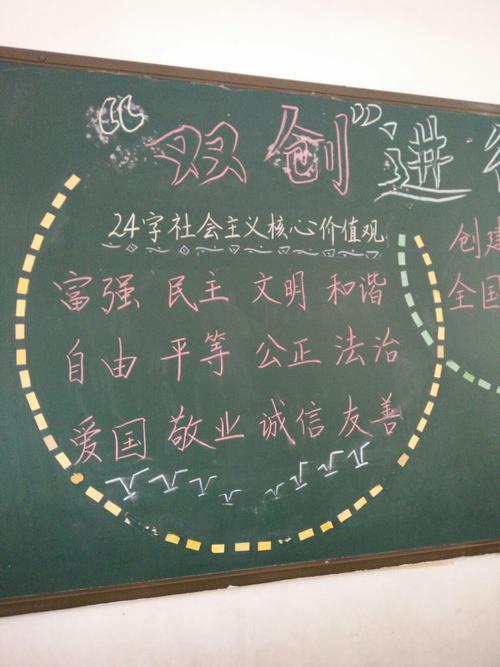 “双创”进
24字社会主义核心价值观
富强 民主 文明 和谐
自由 平等 公正 法治
爱国 敬业 诚信 友善
创建
全国